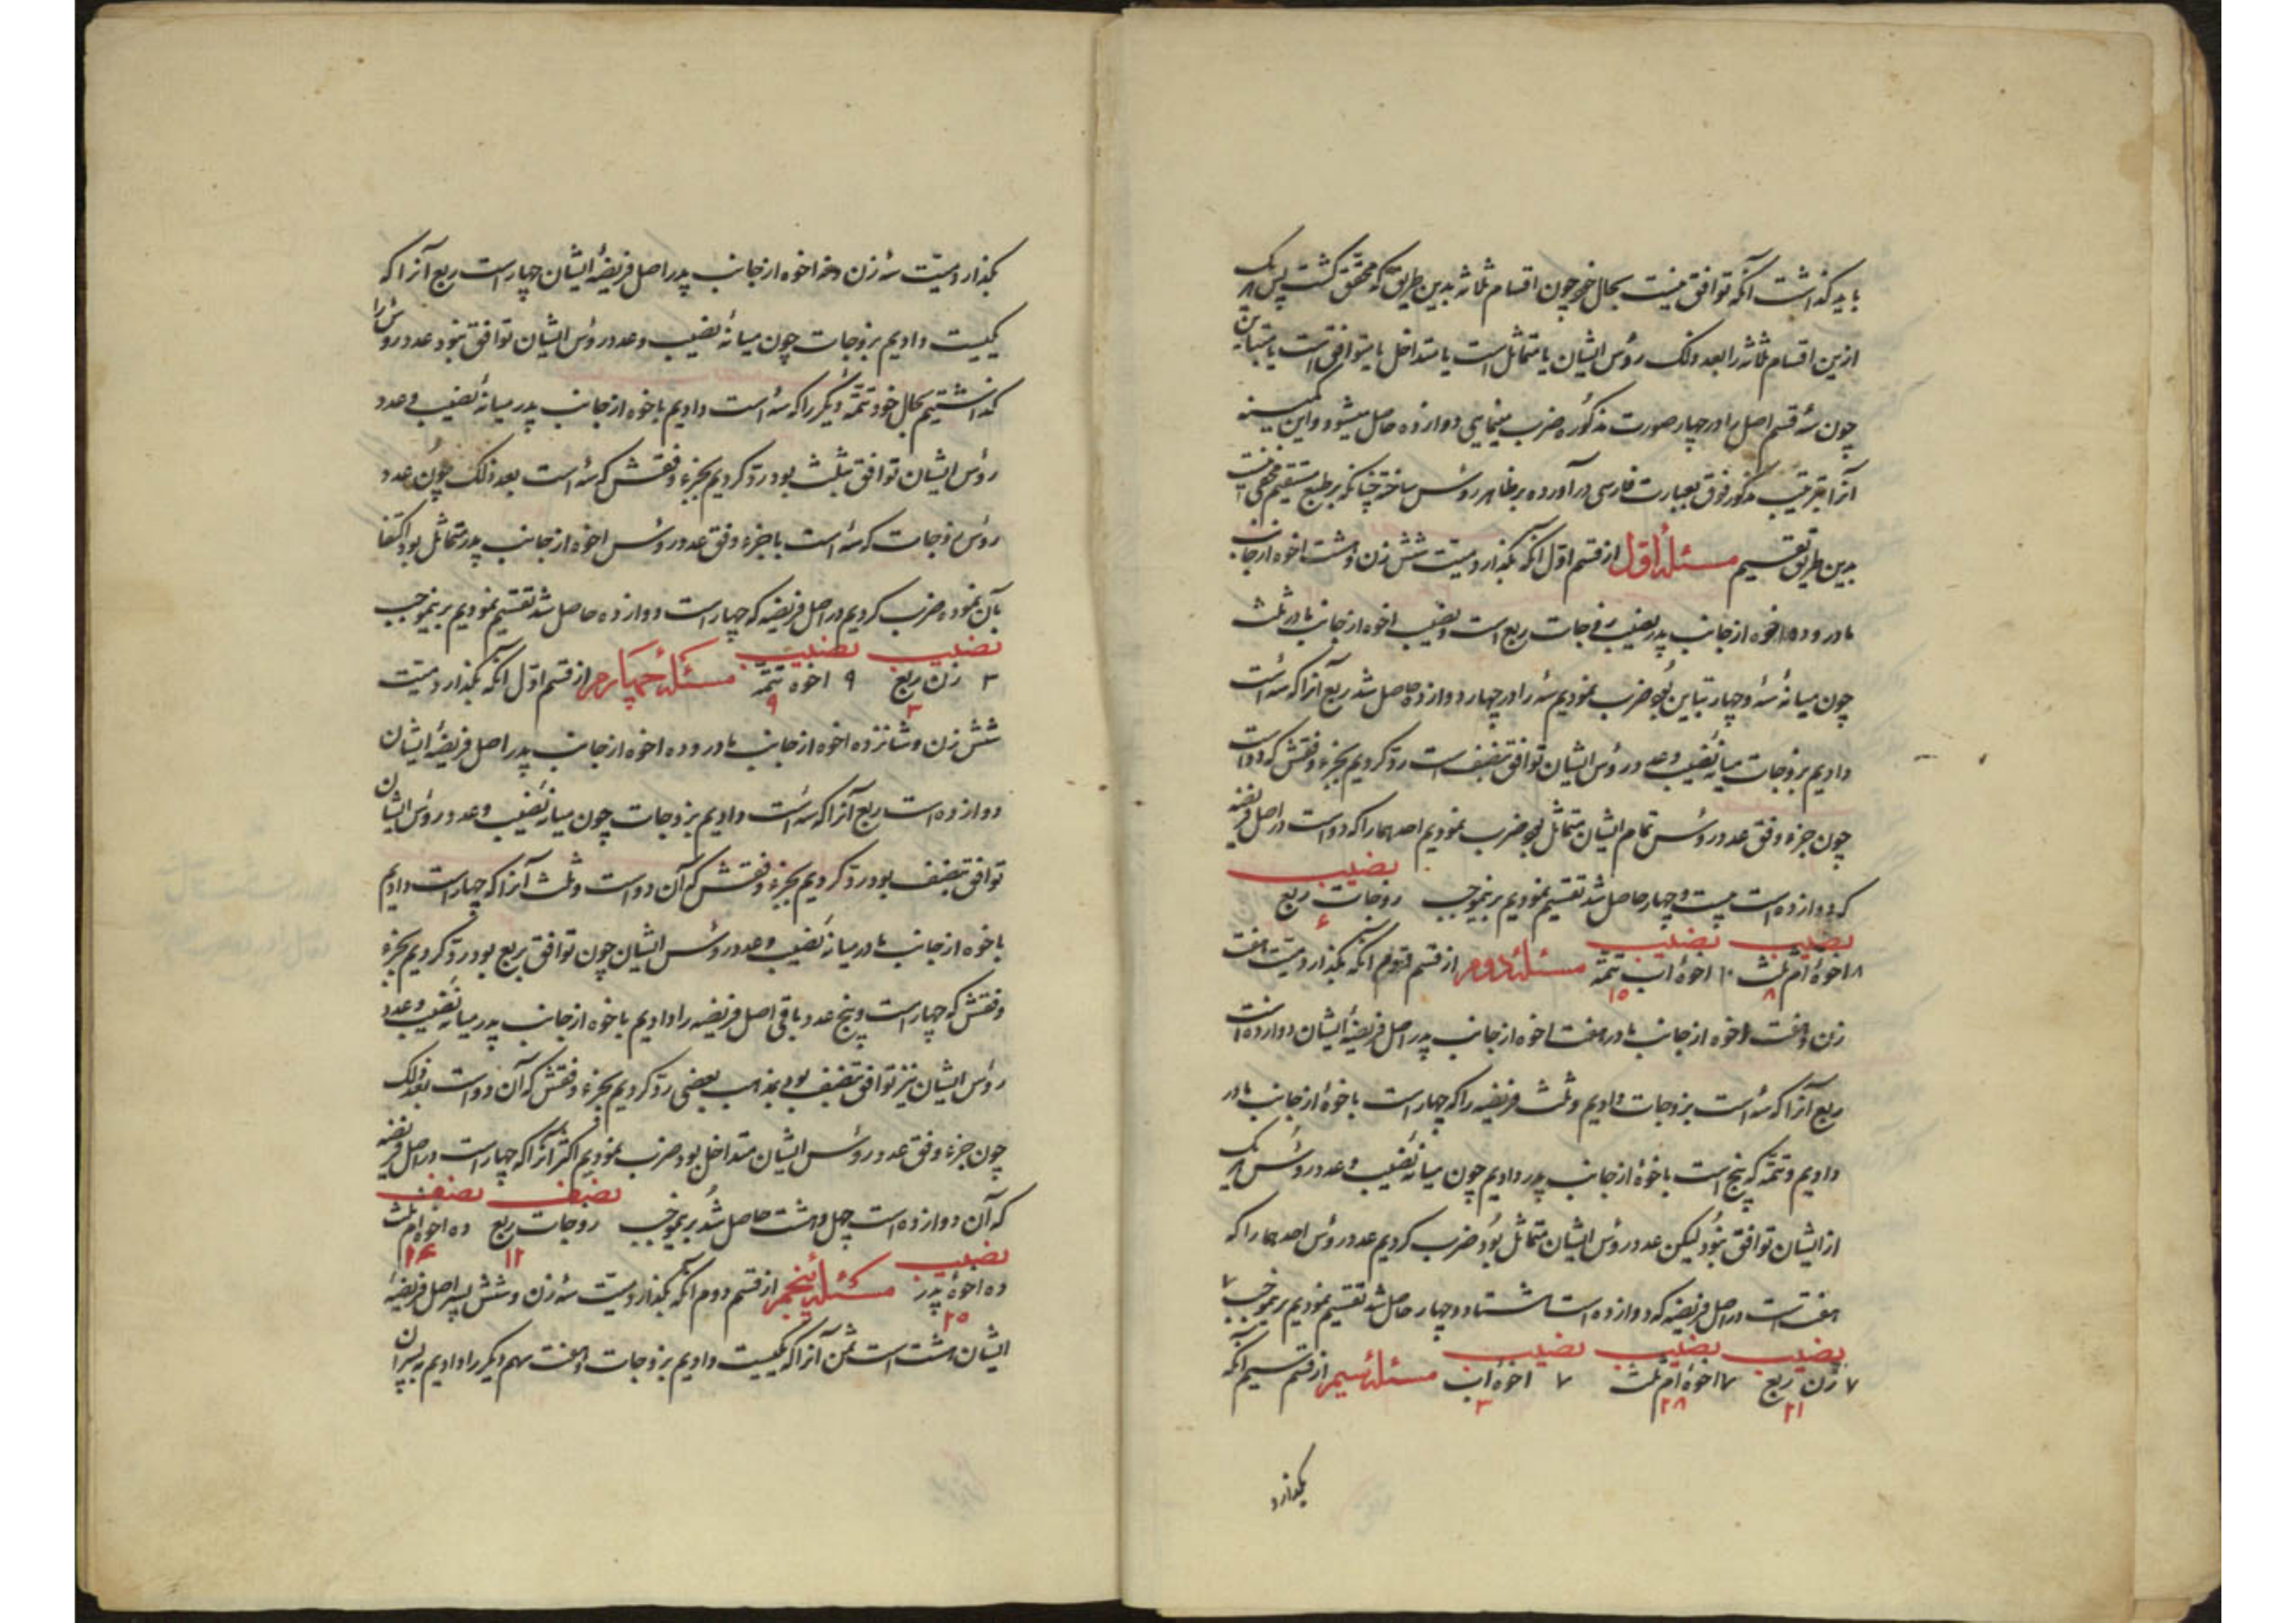 باید گذاشت آنکه توافق نیست بحال خود چون اقسام ثلاثه بدین طریق که محقق گشت پس هر یک
ازین اقسام ثلاثه را بعد ذلک رؤس ایشان یا متماثل است یا متداخل یا متوافق است یا متباین
چون سه قسم اصل را در چهار صورت مذکوره ضرب مینمایی دوازده حاصل میشود و این کمینه
آنرا بترتیب مذکور فوق بعبارت فارسی در آورده بر ظاهر روشن ساخته چنانکه بر طبع مستقیم مخفی نیست
بدین طریق تقسیم مسئلهٔ اول از قسم اول آنکه بگذارد میّت شش زن و هشت اخوه از جانب
مادر و ده اخوه از جانب پدر نصیب زوجات ربع است و نصیب اخوه از جانب مادر ثلث
چون میانهٔ سه و چهار تباین بود ضرب نمودیم سه را در چهار دوازده حاصل شد ربع آنرا که سه است
دادیم بزوجات میانهٔ نصیب و عدد رؤس ایشان توافق بنصف است ردّ کردیم بجزء وفقش که دو است
چون جزء وفق عدد رؤس تمام ایشان متماثل بود ضرب نمودیم احدهما را که دو است در اصل فریضه
که دوازده است بیست و چهار حاصل شد تقسیم نمودیم برینموجب زوجات ربع نصیب ۶
۸ اخوهٔ ام ثلث نصیب ۸ ۱۰ اخوهٔ اب تتمّه نصیب ۱۰ مسئلهٔ دوم از قسم دوم آنکه بگذارد میّت هفت
زن و هفت اخوه از جانب مادر هفت اخوه از جانب پدر اصل فریضهٔ ایشان دوازده است
ربع آنرا که سه است بزوجات دادیم و ثلث فریضه را که چهار است باخوهٔ از جانب مادر
دادیم و تتمّه که پنج است باخوهٔ از جانب پدر دادیم چون میانهٔ نصیب و عدد رؤس هر یک
از ایشان توافق نبود لیکن عدد رؤس ایشان متماثل بود ضرب کردیم عدد رؤس احدهما را که
هفت است در اصل فریضه که دوازده است هشتاد و چهار حاصل شد تقسیم نمودیم برینموجب ۷
۷ زن ربع نصیب ۲۱ ۷ اخوهٔ ام ثلث نصیب ۲۸ ۷ اخوهٔ اب نصیب ۳ مسئلهٔ سیم از قسم سیم آنکه
بگذارد
بگذارد میّت سه زن و نه اخوه از جانب پدر اصل فریضهٔ ایشان چهار است ربع آنرا که
یکیست دادیم بزوجات چون میانهٔ نصیب و عدد رؤس ایشان توافق نبود عدد رؤس را
گذاشتیم بحال خود تتمّهٔ دیگر را که سه است دادیم باخوه از جانب پدر میانهٔ نصیب و عدد
رؤس ایشان توافق بثلث بود ردّ کردیم بجزء وفقش که سه است بعد ذلک چون عدد
رؤس زوجات که سه است با جزء وفق عدد رؤس اخوه از جانب پدر متماثل بود اکتفا
بآن نموده ضرب کردیم در اصل فریضه که چهار است دوازده حاصل شد تقسیم نمودیم برینموجب
۳ زن ربع نصیب ۳ ۹ اخوه تتمّه نصیب ۹ مسئلهٔ چهارم از قسم اول آنکه بگذارد میّت
شش زن و شانزده اخوه از جانب مادر و ده اخوه از جانب پدر اصل فریضهٔ ایشان
دوازده است ربع آنرا که سه است دادیم بزوجات چون میانهٔ نصیب و عدد رؤس ایشان
توافق بنصف بود ردّ کردیم بجزء وفقش که آن دو است و ثلث آنرا که چهار است دادیم
باخوه از جانب مادر میانهٔ نصیب و عدد رؤس ایشان چون توافق بربع بود ردّ کردیم بجزء
وفقش که چهار است و پنج عدد باقی اصل فریضه را دادیم باخوه از جانب پدر میانهٔ نصیب و عدد
رؤس ایشان نیز توافق بنصف بود بمذهب بعضی ردّ کردیم بجزء وفقش که آن دو است بعد ذلک
چون جزء وفق عدد رؤس ایشان متداخل بود ضرب نمودیم اکثر آنرا که چهار است در اصل فریضه
که آن دوازده است چهل و هشت حاصل شد برینموجب زوجات ربع نصیف ۱۲ ده اخوهٔ ام ثلث نصیف ۱۶
ده اخوهٔ پدر نصیب ۲۰ مسئلهٔ پنجم از قسم دوم آنکه بگذارد میّت سه زن و شش پسر اصل فریضهٔ
ایشان هشت است ثمن آنرا که یکیست دادیم بزوجات و هفت سهم دیگر را دادیم به پسران